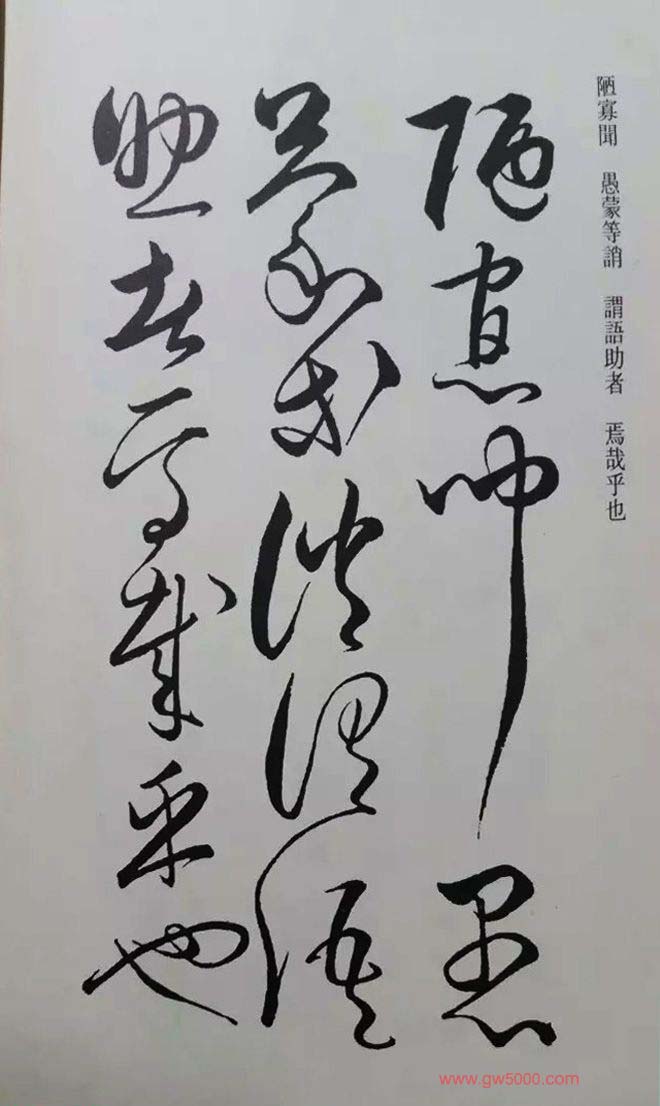 陋寡聞　愚蒙等誚　謂語助者　焉哉乎也
陋寡聞愚
蒙等誚謂語
助者焉哉乎也
www.gw5000.com